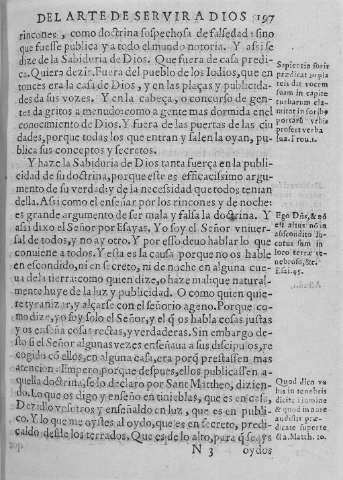 DEL ARTE DE SERVIR A DIOS 197
rincones, como doctrina sospechosa de falsedad: sino
que fuesse publica y a todo el mundo notoria. Y assi se
dize de la Sabiduria de Dios. Que fuera de casa predi-
ca. Quiere dezir. Fuera del pueblo de los Iudios, que en-
tonces era la casa de Dios, y en las plaças y publicida-
des da sus vozes. Y en la cabeça, o concurso de gen-
tes da gritos a menudo: como a gente mas dormida en el
conocimiento de Dios. Y fuera de las puertas de las ciu
dades, porque todas los que entran y salen la oyan, pu-
blica sus conceptos y secretos.
Y haze la Sabiduria de Dios tanta fuerça en la publi-
cidad de su doctrina, porque este es efficacissimo argu-
mento de su verdad: y de la necessidad que todos tenian
della. Assi como el enseñar por los rincones y de noche:
es grande argumento de ser mala y falsa la doctrina. Y
assi dixo el Señor por Esayas, Yo soy el Señor vniuer-
sal de todos, y no ay otro. Y por esso deuo hablar lo que
conuiene a todos. Y esta es la causa porque no os hable
en escondido, ni en secreto, ni de noche en alguna cue-
ua de la tierra: como quien dize, o haze mal: que natural-
mente huye de la luz y publicidad. O como quien quie-
re tyranizar, y alçarse con el señorio ageno. Porque co-
mo dize, yo soy solo el Señor, y el que os habla cosas justas
y os enseña cosas rectas, y verdaderas. Sin embargo de-
sto si el Señor algunas vezes enseñaua a sus discipulos, re
cogido con ellos, en alguna casa, era porque prestassen mas
atencion. Empero, porque despues, ellos publicassen a-
quella doctrina, se lo declaro por Sant Mattheo, dizien-
do. Lo que os digo y enseño en tinieblas, que es en casa,
Dezildo vosotros y enseñaldo en luz, que es en publi-
co. Y lo que me oystes al oydo, que es en secreto, predi-
caldo desde los terrados. Que es de lo alto, para que seays
N 3 oydos
Sapientia foris
prædicat in pla
teis dat vocem
suam in capite
turbarum cla-
mitat in foribus
portarum vrbis
profert verba
sua. Prou. 1.
Ego Dñs, & nõ
est alius nõ in
abscondito lo-
cutus sum in
loco terræ te-
nebroso, &c.
Esai. 45.
Quod dico vo
bis in tenebris
dicite in lumine
& quod in aure
auditis præ-
dicate super te
cta. Matth. 10.